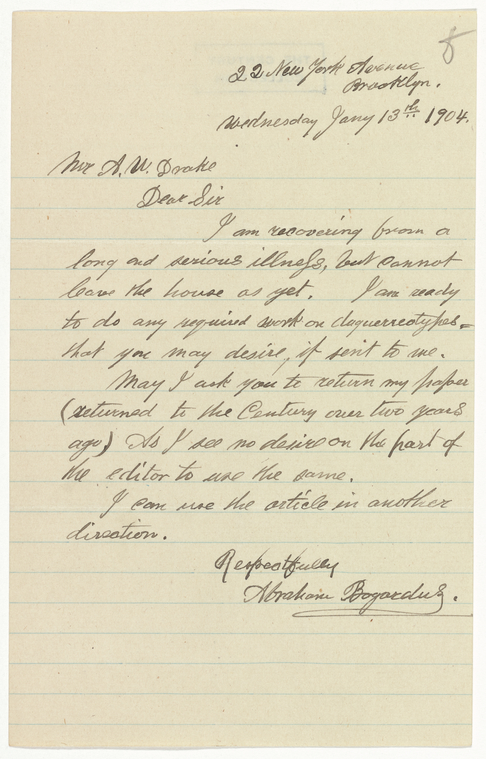 8
22 New York Avenue
Brooklyn.
Wednesday Jany 13th 1904.
Mr A. W. Drake
Dear Sir
I am recovering from a
long and serious illness, but cannot
leave the house as yet. I am ready
to do any required work on daguerreotypes-
that you may desire, if sent to me.
May I ask you to return my paper
(returned to the Century over two years
ago) As I see no desire on the part of
the editor to use the same.
I can use the article in another
direction.
Respectfully
Abraham Bogardus.